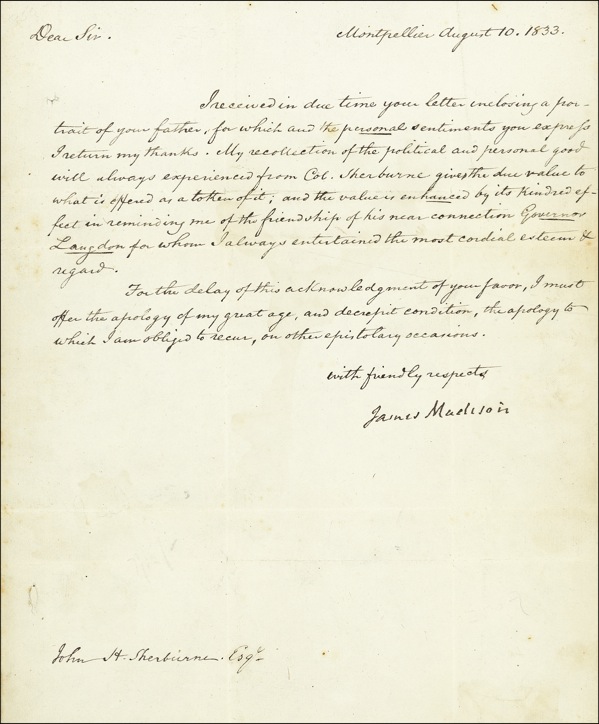 Dear Sir. Montpellier August 10. 1833.
I received in due time your letter inclosing a por-
trait of your father, for which and the personal sentiments you express
I return my thanks. My recollection of the political and personal good
will always experienced from Col. Sherburne gives the due value to
what is offered as a token of it; and the value is enhanced by its kindred ef-
fect in reminding me of the friendship of his near connection Governor
Langdon for whom I always entertained the most cordial esteem &
regard.
For the delay of this acknowledgment of your favor, I must
offer the apology of my great age, and decrepit condition, the apology to
which I am obliged to recur, on other epistolary occasions.
with friendly respects
James Madison
John H. Sherburne. Esqr.